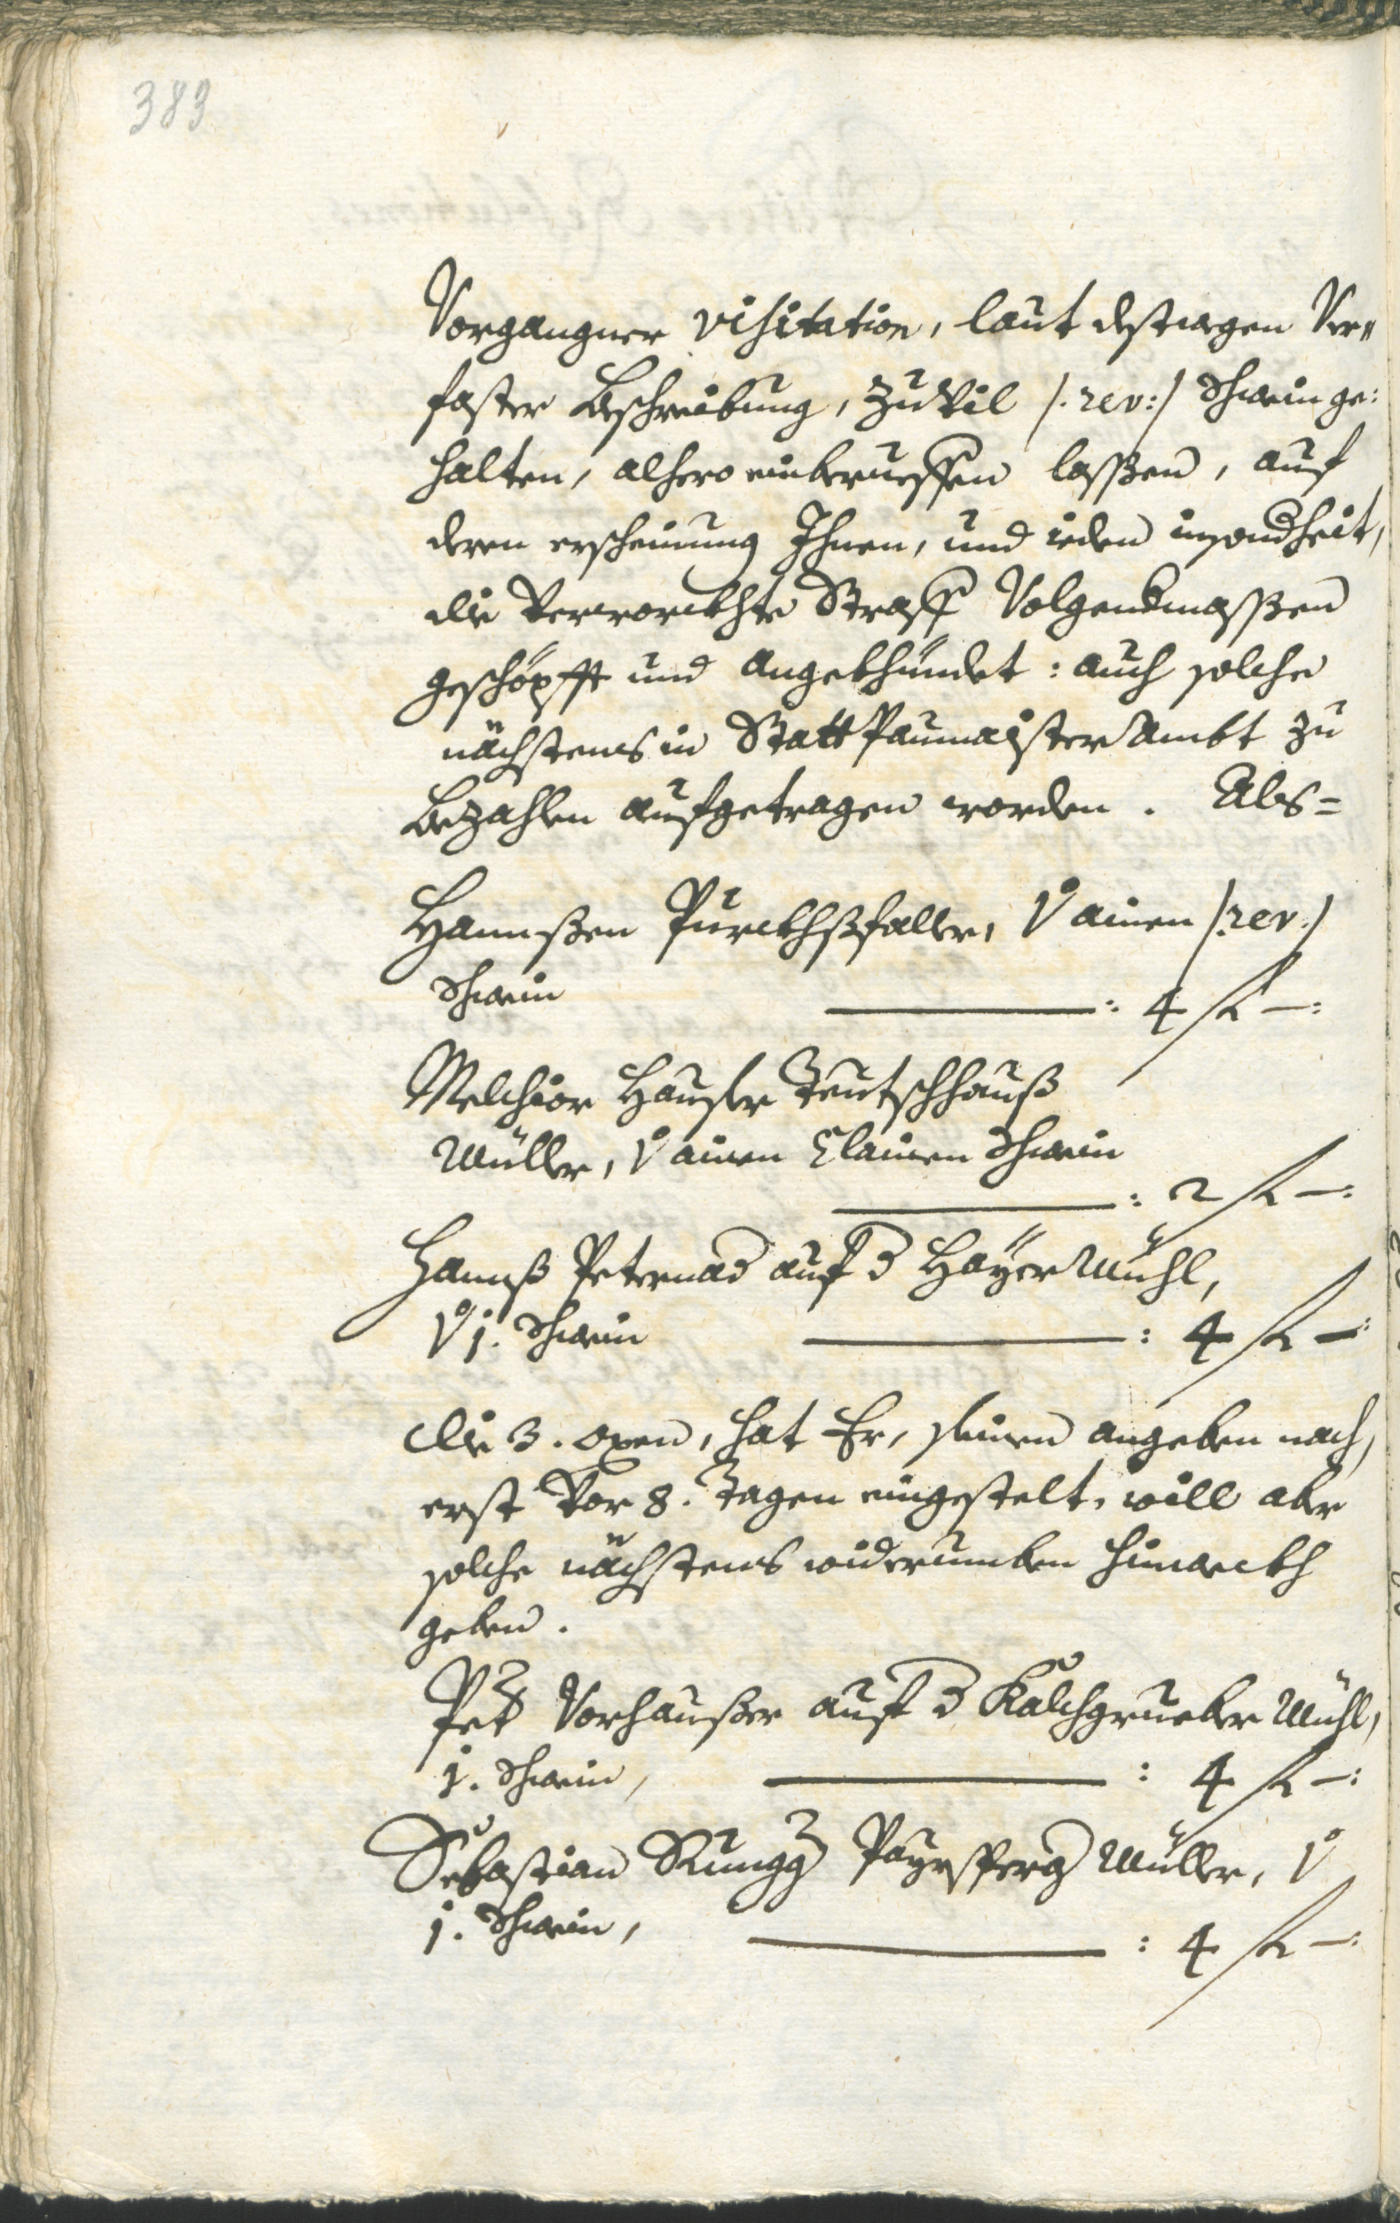 383
Vorgangner visitation, laut destwegen Ver„
faster Beschreibung, zu vil /: rev: / Schwein ge:
halten, alhero einberueffen lassen, auf
deren erscheinung Ihnen, und ieden insondheit,
die Verworckhte Straff Volgendmassen
geschöpfft und angekhündet: auch solche
nächstens in Statt Paumaister Ambt zu
Bezahlen aufgetragen worden. Als=
Hannßen Purckhßtaller, vo ainen /: rev: /
Schwein —: 4 fl —:
Melchior Hauser Teutschhauß
Müller, vo ainen Clainen Schwein
—: 2 fl —:
Hannß Peternad auf d Hayer Mühl,
vo 1. Schwein —: 4 fl —:
die 3. oxen, hat Er, seinen angeben nach,
erst vor 8. Tagen eingestelt, will aber
solche nächstens widerumben hinweckh
geben.
Pet Vorhauser auf d Kalchgrueber Mühl,
1. Schwein, —: 4 fl —:
Sebastian Rungg Payrsperg Müller, vo
1. Schwein, —: 4 fl —: